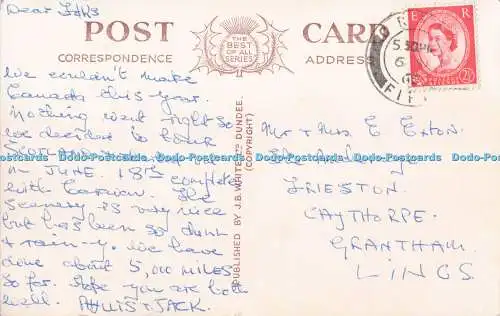 Dear Folks
POST CARD
CORRESPONDENCE
ADDRESS
THE BEST OF ALL SERIES
We couldn't make
Canada this year.
Nothing went right so
we decided to tour
IN JUNE. 18TH complete
with caravan. The
scenery is very nice
but has been so damp
& rain-y. We have
done about 5,000 MILES
so far. Hope you are both
well. PHYLLIS & JACK.
PUBLISHED BY J.B. WHITE LTD. DUNDEE.
(COPYRIGHT)
E R
2½
5.30 PM
6
FIF
Mr & Mrs E Eaton
FRIESTON
CAYTHORPE
GRANTHAM
LINCS
Dodo-Postcards Dodo-Postcards Dodo-Postcards Dodo-Postcards Dodo-Postcards Dodo-Postcards